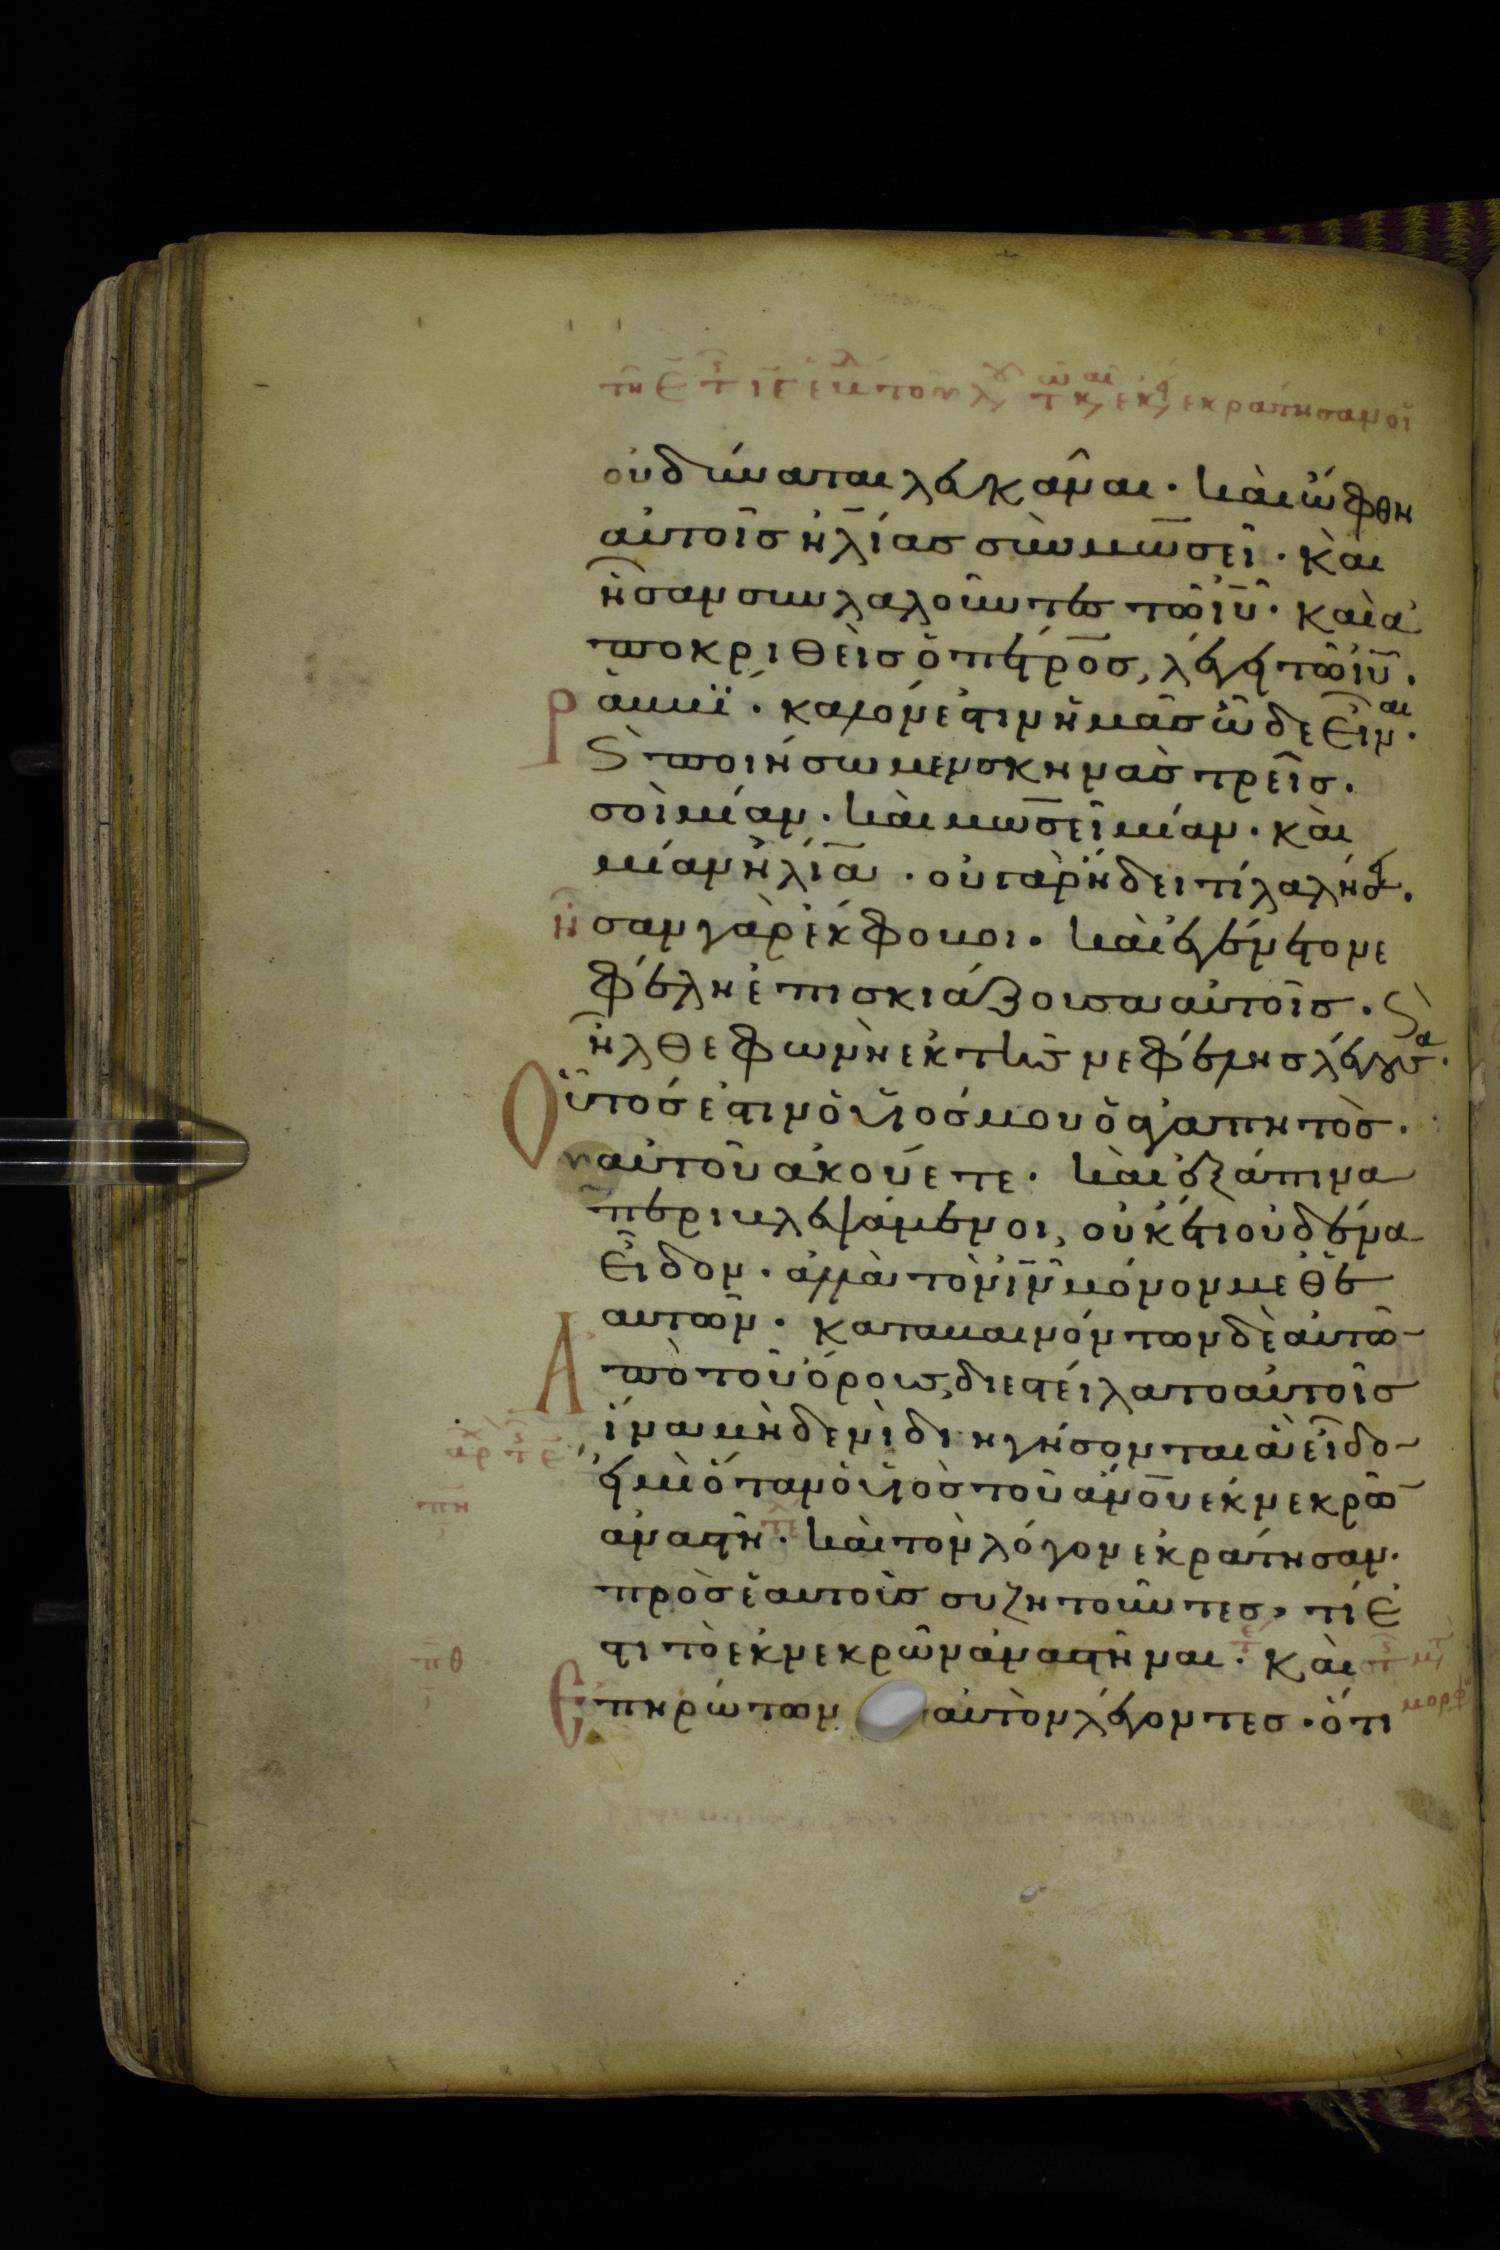 οὐ δύναται λευκᾶναι· καὶ ὤφθη
αὐτοῖς ἠλίας σὺν μωσεῖ· καὶ
ἦσαν συνλαλοῦντες τῶ ἰῦ· καὶ ἀ
ποκριθεὶς ὁ πέτρος, λέγει τῶ ἰῦ·
Ραββϊ· καλόν ἐστιν ἡμᾶς ὧδε εἶναι·
ϛ ποιήσωμεν σκηνὰς τρεῖς·
σοὶ μίαν· καὶ μωσεῖ μίαν· καὶ
μίαν ἠλία· οὐ γὰρ ἤδει τί λαλήσει·
ἦσαν γὰρ ἔκφοβοι· καὶ ἐγένετο νε
φέλη ἐπισκιάζουσα αὐτοῖς· ϛ
ἦλθε φωνὴ ἐκ τῆς νεφέλης λέγουσα·
Οὗτός ἐστιν ὁ υἱός μου ὁ ἀγαπητὸς·
αὐτοῦ ἀκούετε· καὶ ἐξάπινα
περιβλεψάμενοι, οὐκέτι οὐδένα
εἶδον· ἀλλὰ τὸν ἰν μόνον μεθ ἑ
αυτῶν· καταβαινόντων δὲ αὐτῶ
Ἀπὸ τοῦ ὄρους, διεστείλατο αὐτοῖς
ἵνα μηδενὶ διηγήσονται ἃ εἶδο
εἰ μὴ ὅταν ὁ υἱὸς τοῦ ἀνου ἐκ νεκρῶ
ἀναστῆ· καὶ τὸν λόγον ἐκράτησαν·
πρὸς ἑαυτοὺς συζητοῦντες, τί ἐ
στι τὸ ἐκ νεκρῶν ἀναστῆναι· καὶ
Ἐπηρώτων αὐτὸν λέγοντες· ὅτι